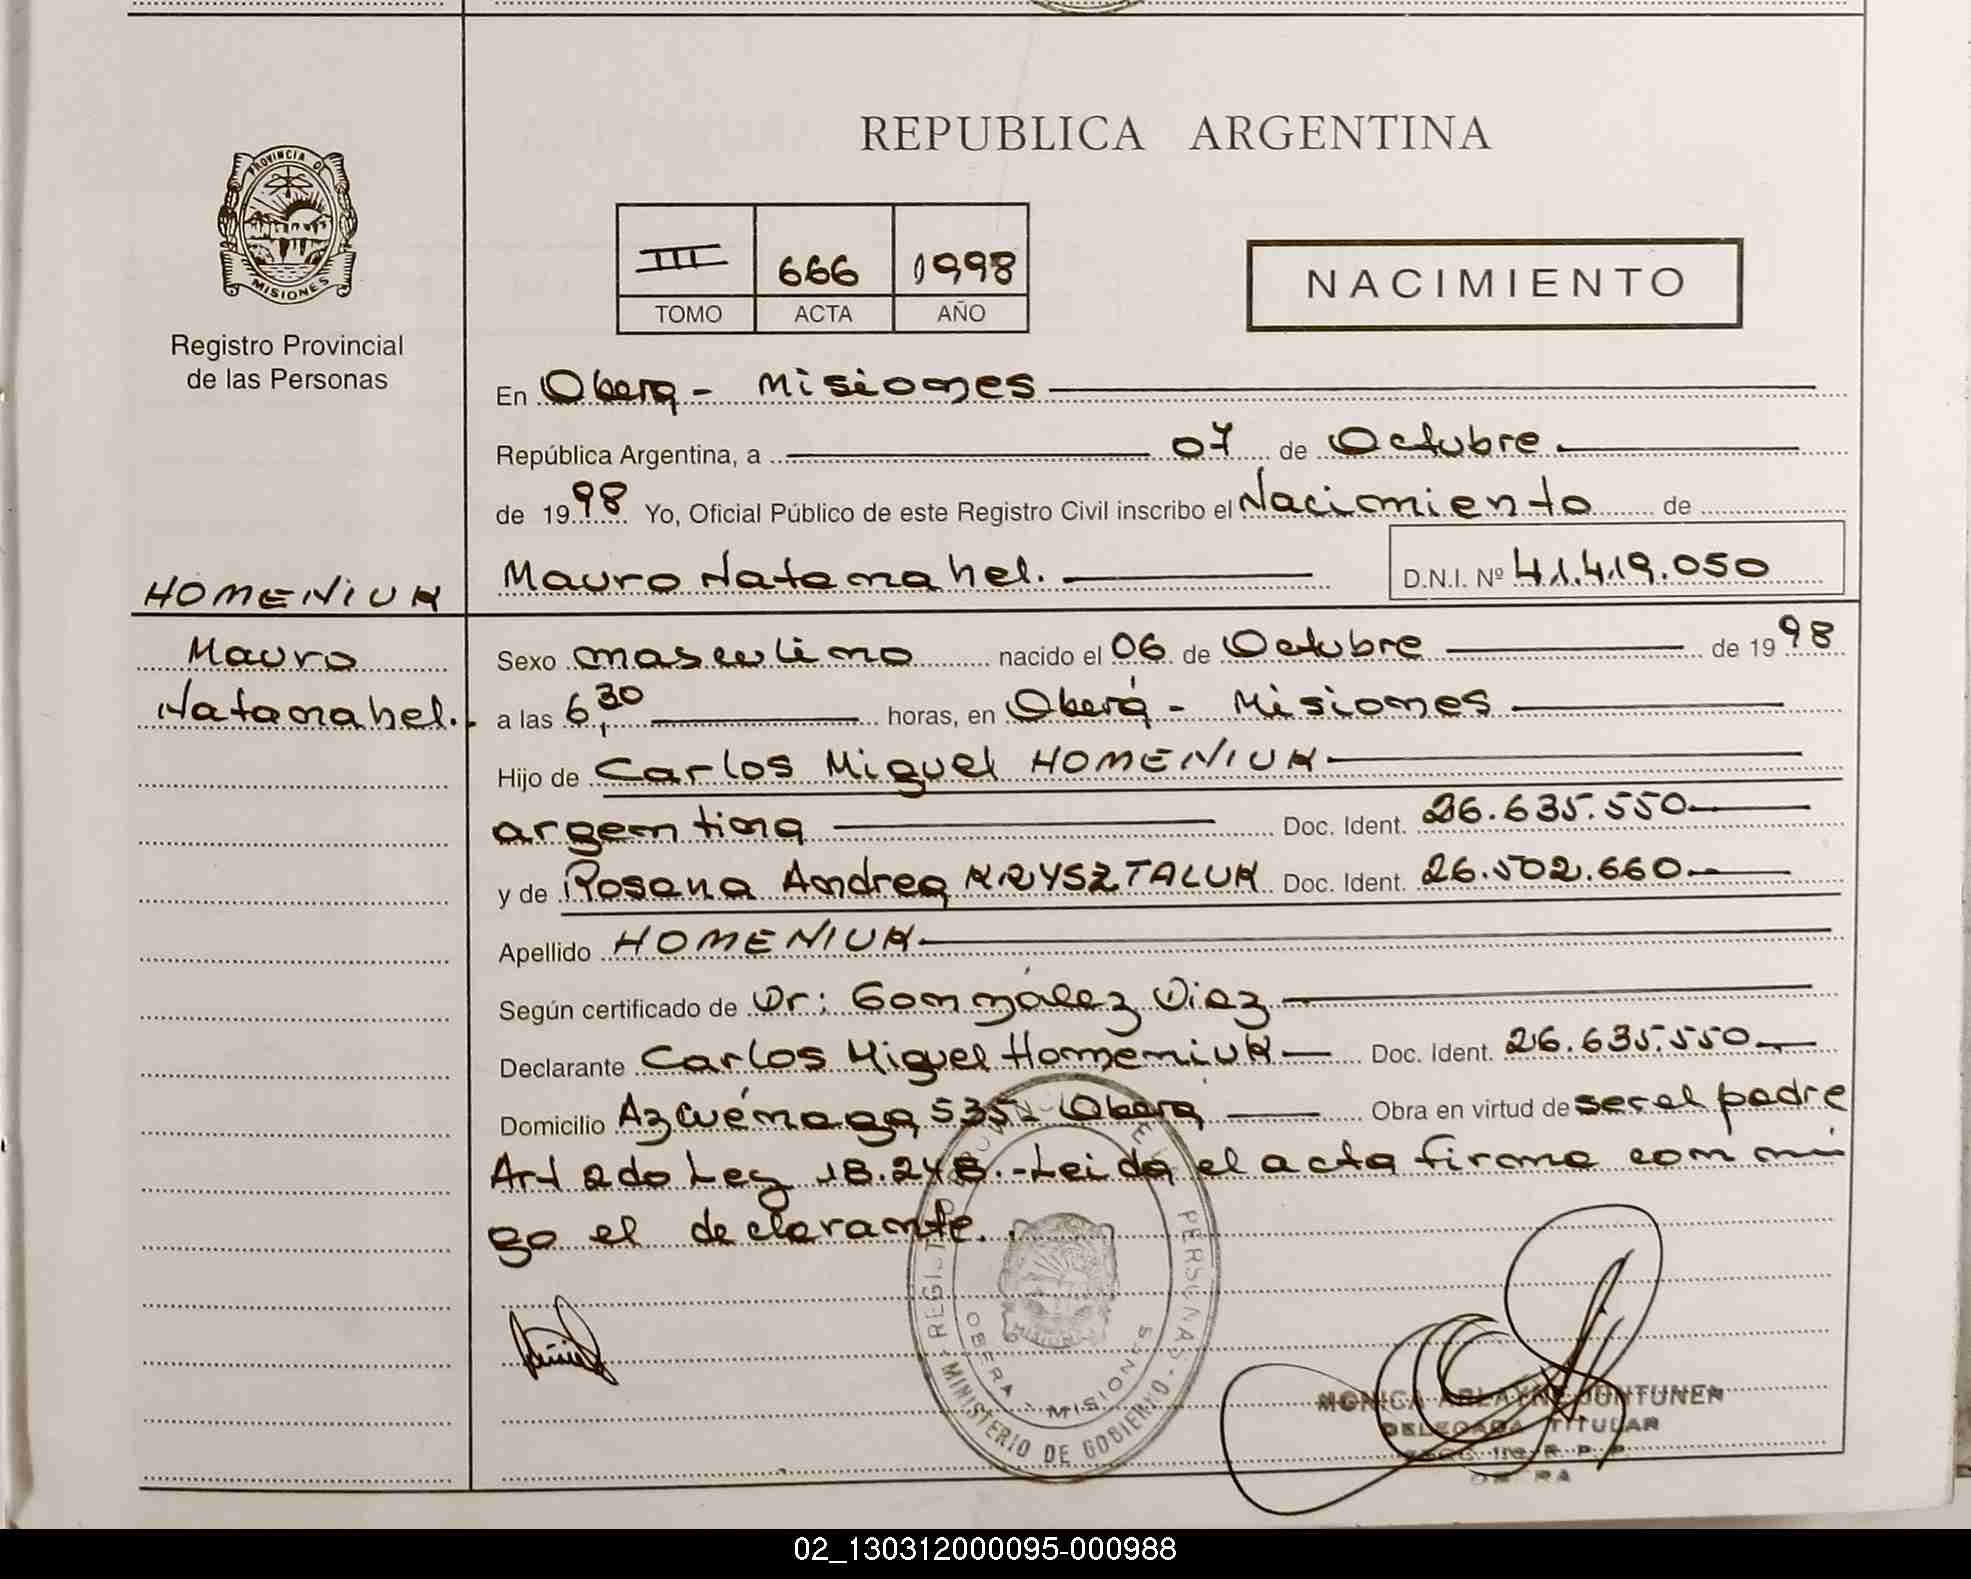 REPUBLICA ARGENTINA
PROVINCIA DE
MISIONES
Registro Provincial
de las Personas
III 666 1998
TOMO ACTA AÑO
NACIMIENTO
En Oberá - Misiones
República Argentina, a 07 de Octubre
de 1998 Yo, Oficial Público de este Registro Civil inscribo el Nacimiento de
HOMENIUK
Mauro Natanahel. D.N.I. Nº 41.419.050
Mauro
Natanahel.
Sexo masculino nacido el 06 de Octubre de 1998
a las 6,30 horas, en Oberá - Misiones
Hijo de Carlos Miguel HOMENIUK
argentina Doc. Ident. 26.635.550
y de Rosana Andrea KRYSZTALUK Doc. Ident. 26.502.660
Apellido HOMENIUK
Según certificado de Dr: González Diaz
Declarante Carlos Miguel Homeniuk Doc. Ident. 26.635.550
Domicilio Azcuénaga 535 - Oberá Obra en virtud de ser el padre
Art 2do Ley 18.248.- Leida el acta firma con mi
go el declarante.
PERSONAS
MINISTERIO DE GOBIERNO
OBERA - MISIONES
MISIONES
MONICA ARLAYNE JUNTUNEN
DELEGADA TITULAR
R. P. P.
02_130312000095-000988